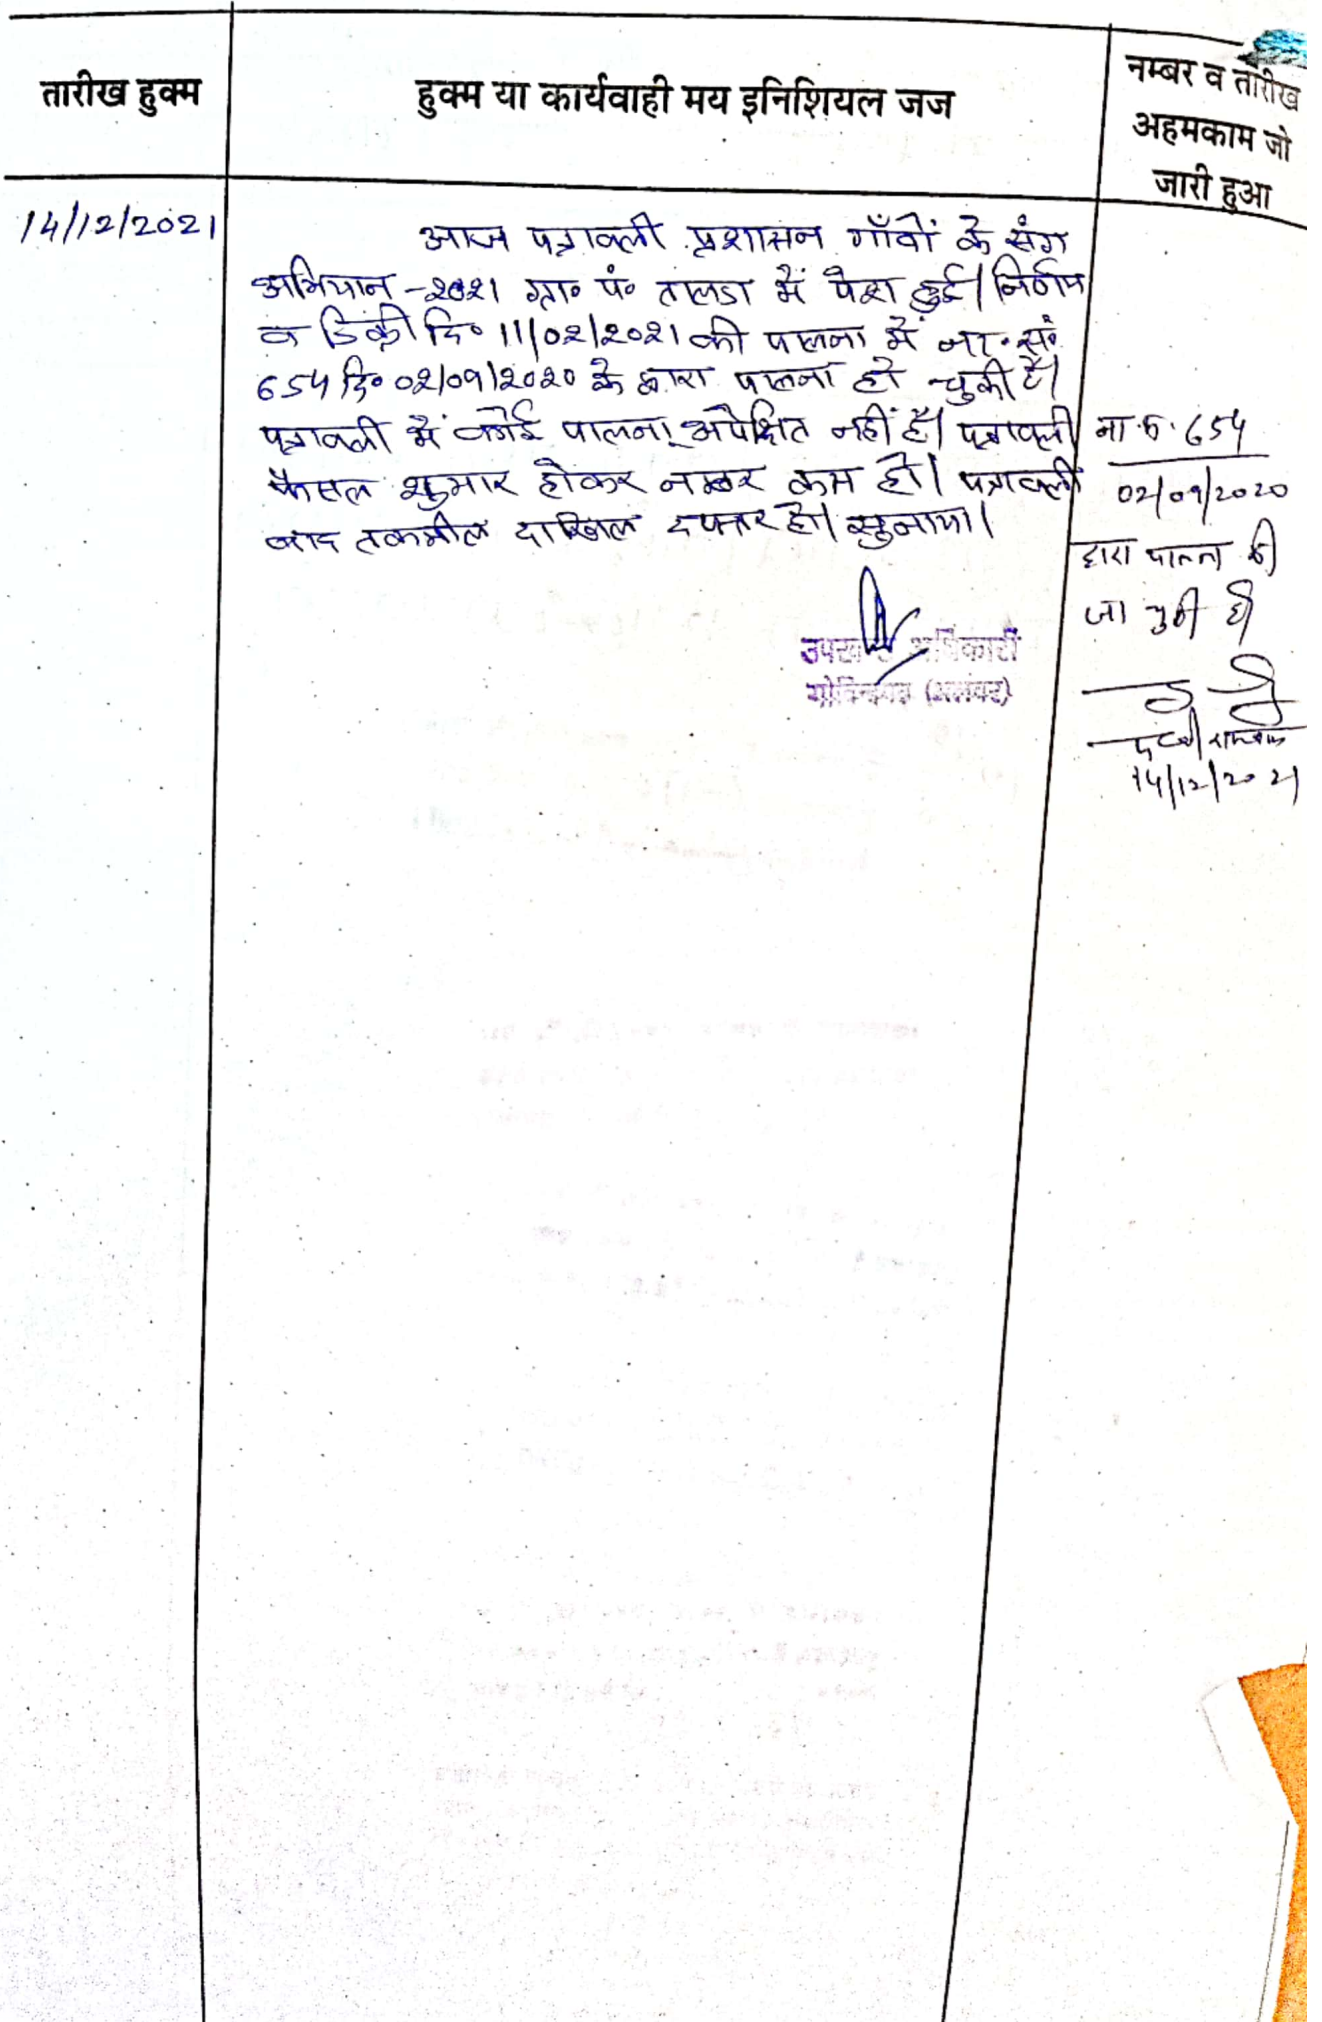 तारीख हुक्म
हुक्म या कार्यवाही मय इनिशियल जज
नम्बर व तारीख
अहमकाम जो
जारी हुआ
14/12/2021
आज पत्रावली प्रशासन गाँवों के संग
अभियान -2021 ग्रा॰ पं॰ तालडा में पेश हुई। निर्णय
व डिक्री दि॰ 11/02/2021 की पालना में ना॰ सं॰
654 दि॰ 02/09/2020 के द्वारा पालना हो चुकी है।
पत्रावली में कोई पालना अपेक्षित नहीं है। पत्रावली
फैसल शुमार होकर नम्बर कम हो। पत्रावली
बाद तकमील दाखिल दफ्तर हो। सुनाया।
उपखण्ड अधिकारी
गोविन्दगढ़ (अलवर)
654
02/09/2020
द्वारा पालना की
जा चुकी है
14/12/2021